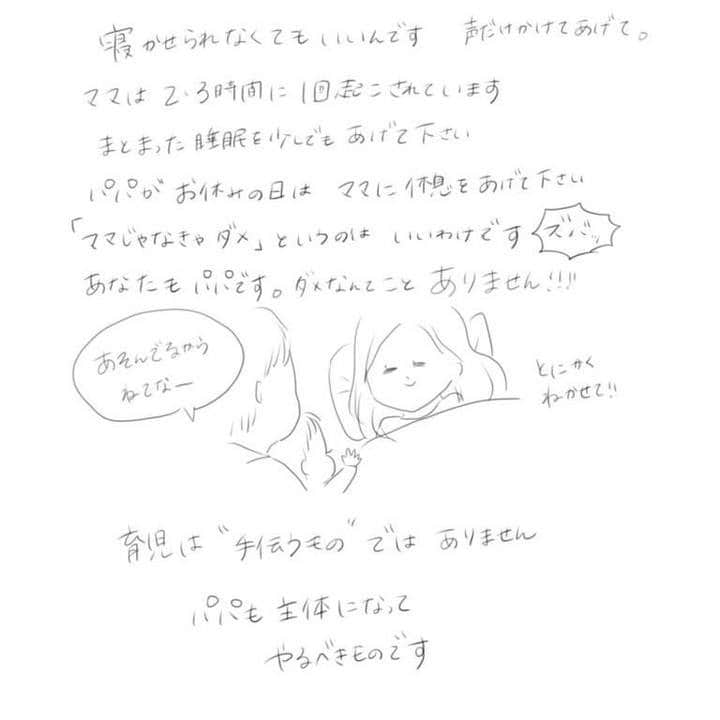 寝かせられなくてもいいんです 声だけかけてあげて。
ママは2・3時間に1回起こされています
まとまった睡眠を少しでもあげて下さい
パパがお休みの日は ママに休憩をあげて下さい
「ママじゃなきゃダメ」というのは いいわけです ズバッ
あなたもパパです。ダメなんてこと ありません!!!
あそんでるから
ねてなー
とにかく
ねかせて!!
育児は"手伝うもの"では ありません
パパも 主体になって
やるべきものです